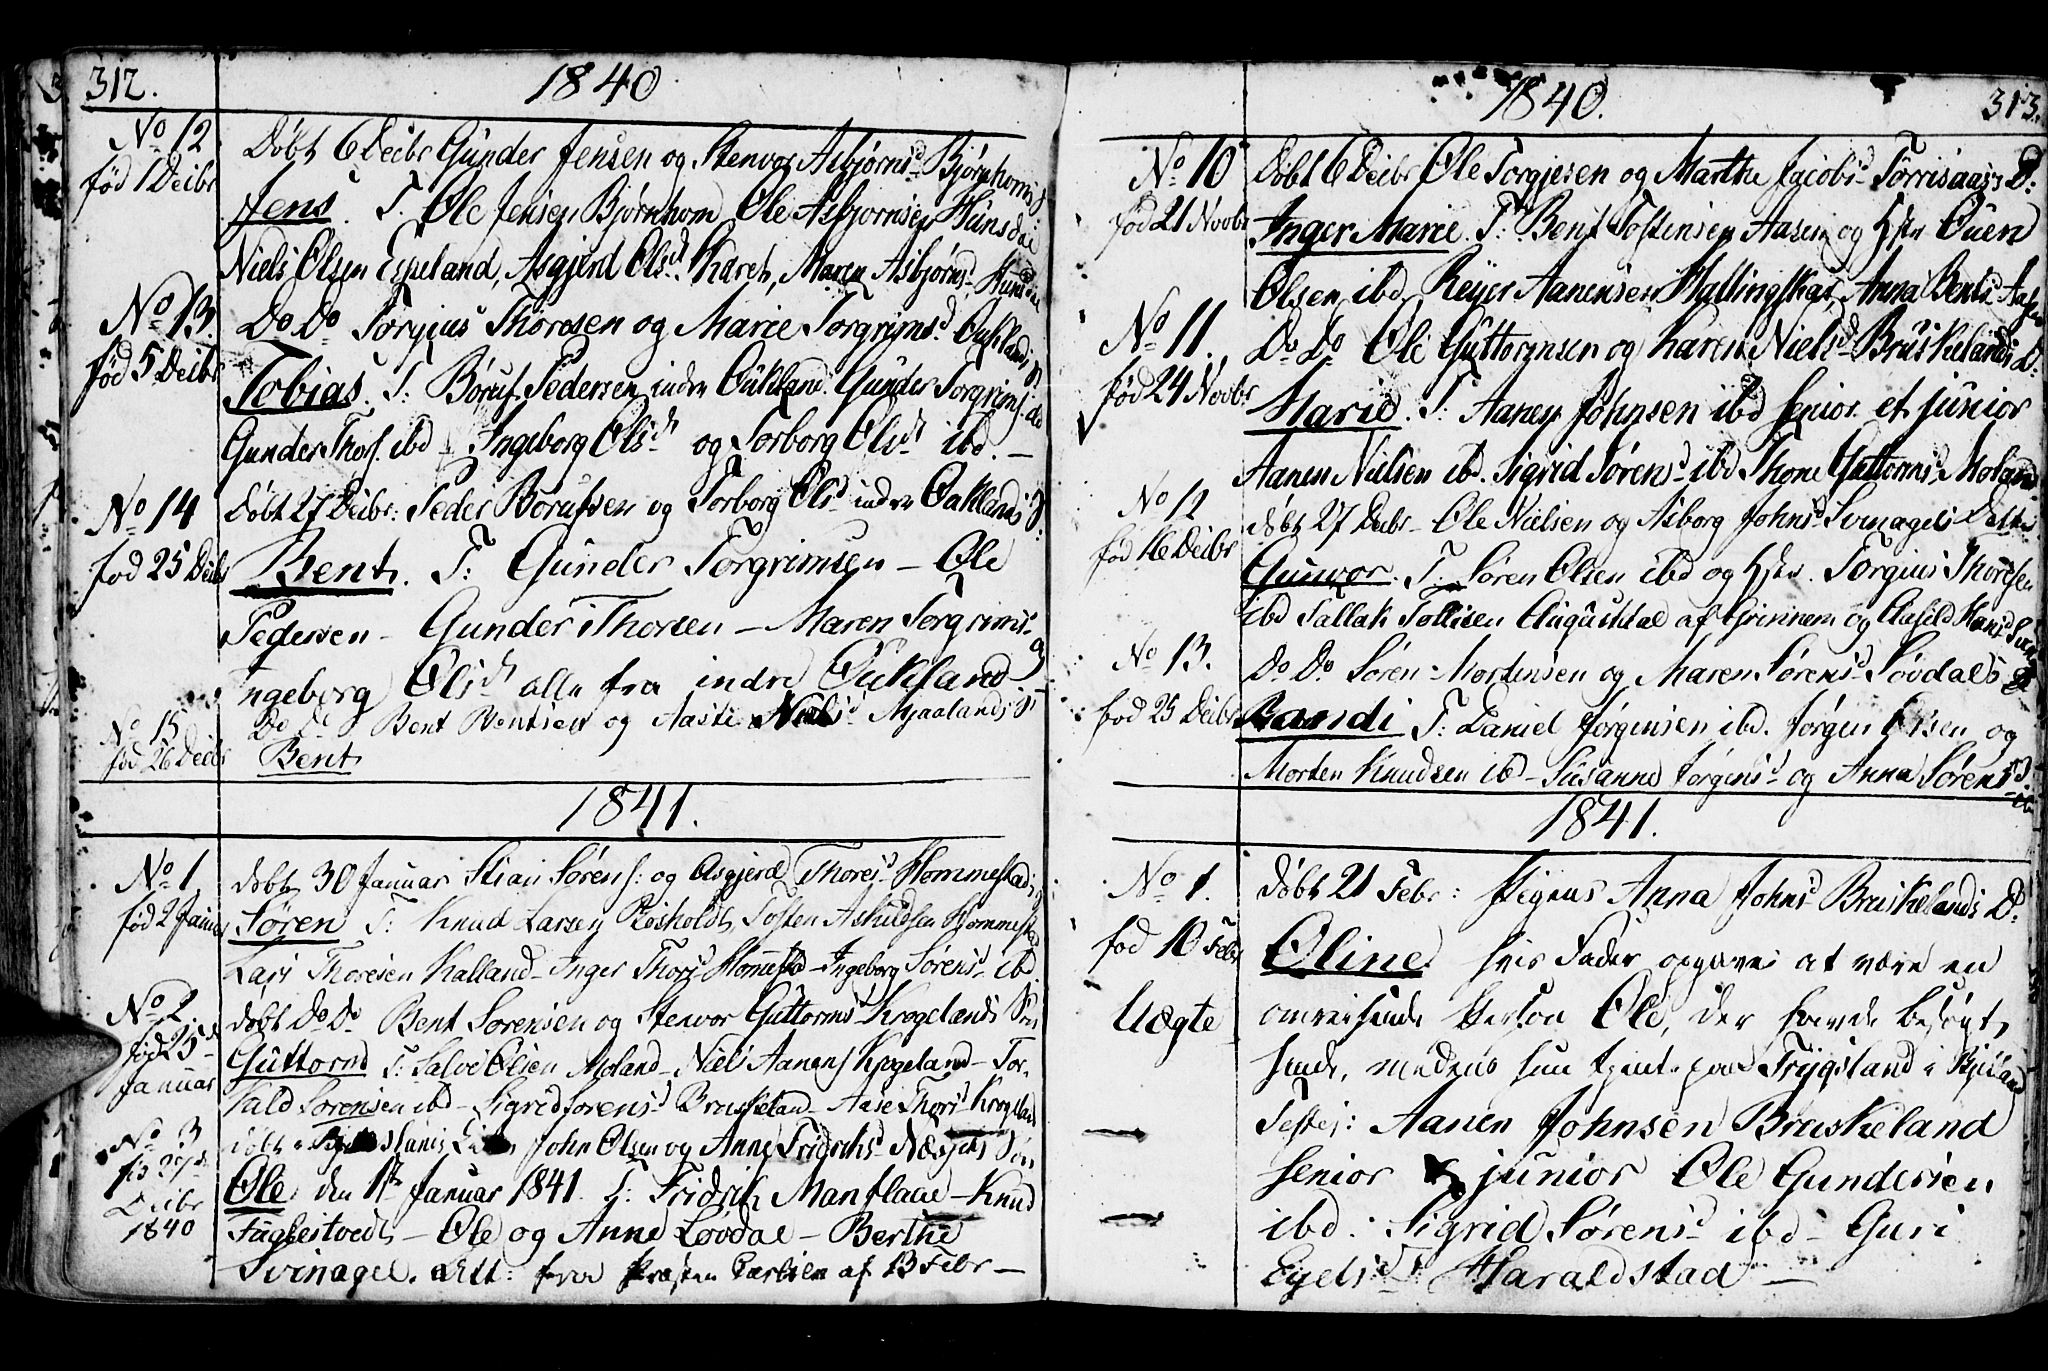 312.
1840
No 12
fød 1 Decbr
Døbt 6 Decbr Gunder Jensen og Stenvor Asbjørnsd Bjørnhoms S:
Jens. T. Ole Jensen Bjørnhom Ole Asbjørnsen Hunsdal
Niels Olsen Espeland, Asgjerd Olsd Kareh, Maren Asbjørnsd Hunsdal
No 13.
fød 5 Decbr
Do Do Torgius Thoresen og Marie Torgrimsd Oukland S:
Tobias. T: Børuf Pedersen indre Oukland Gunder Torgrims. ibd
Gunder Thors. ibd Ingeborg Olsd og Torborg Olsd ibd. —
No 14
fød 25 Decbr
Døbt 27 Decbr: Peder Børufsen og Torborg Olsd indre Ouklands S:
Bent. T: Gunder Torgrimsen — Ole
Pedersen — Gunder Thorsen — Maren Torgrimsd
Ingeborg Olsd alle fra indre Oukland
No 15
fød 26 Decbr
Do Do Bent Bentsen og Aaste Nielsd Mjaalands S:
Bent
1841.
No 1
fød 2 Januar
døbt 30 Januar Stian Sørens: og Asgjerd Thoresd Hommestad
Søren T: Knud Larsen Røisholdt, Tosten Asludsen Hommestad
Lars Thoresen Kalland — Inger Thorsd Hommestad — Ingeborg Sørensd ibd
No 2
fød 25d
Januar
døbt Do Do Bent Sørensen og Stenvor Guttormsd Krogelands Søn
Guttorm T: Salve Olsen Moland — Niels Aanens Krogeland — Tor-
kald Sørensen ibd — Sigrid Sørensd Bruskeland — Aase Thorsd Krogeland
No 3
fød 27d
Decbr
1840
døbt i John Olsen og Anne Fridrichsd Næsjels Søn
Ole den 17 Januar 1841. T: Fridrik Manflaae — Knud
Fuglestvedt — Ole og Anne Løvdal — Berthe
Svinagel. Att: fra Præsten Carlsen af 13 Febr —
1840.
313.
No 10
fød 21 Novbr
Døbt 6 Decbr Ole Torgjesen og Marthe Jacobsd Torrisaass D:
Inger Marie. T: Bent Tostensen Aasen og Hstr Ouen
Olsen ibd, Reyer Aanensen Hallingskar, Anna Bentsd Aasen
No 11.
fød 24 Novbr
Do Do Ole Guttormsen og Karen Nielsd Bruskelands D:
Marie. T: Aanen Johnsen ibd senior et junior
Aanen Nielsen ibd. Sigrid Sørensd ibd Thone Guttormsd Moland
No 12
fød 16 Decbr
døbt 27 Decbr — Ole Nielsen og Asborg Johnsd Svinagels Datter
Gunvor. T: Søren Olsen ibd og Hstr. Torgius Thoresen
ibd Tallak Tollisen Augustdal af Grinnem og Aasild Hansd Svin
No 13.
fød 25 Decbr
Do Do Søren Mortensen og Maren Sørensd Løvdals D
Randi T: Daniel Jørgensen ibd. Jørgen Olsen og
Morten Knudsen ibd — Susanne Jørgensd og Anna Sørensd ib
1841.
No 1.
fød 10 Febr
Uægte
døbt 21 Febr: Pigens Anna Johnsd Bruskelands D:
Oline hvis Fader opgaves at være en
omreisende Person Ole, der havde besøgt
hende, medens hun tjente paa Trygsland i Bjelland
Testes: Aanen Johnsen Bruskeland
senior & junior Ole Gundersen
ibd: Sigrid Sørensd ibd — Guri
Eyelsd Haraldstad —